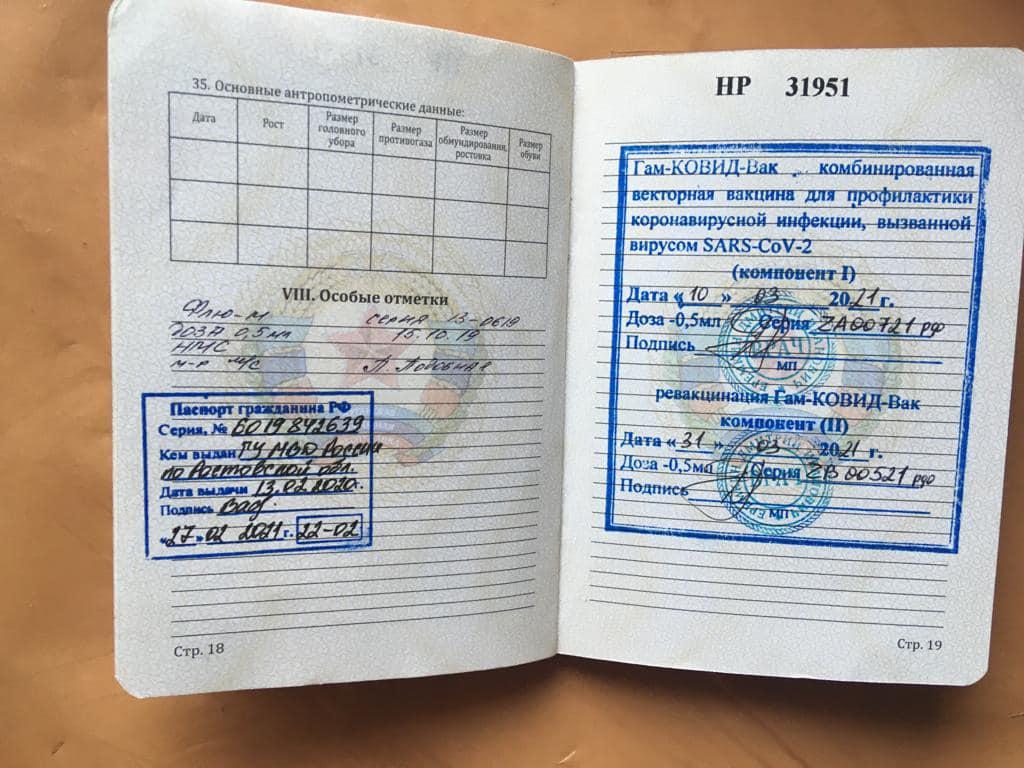 35. Основные антропометрические данные:
Дата Рост Размер головного убора Размер противогаза Размер обмундирования, ростовка Размер обуви
VIII. Особые отметки
Флю-М серия 13-0619
доза 0,5мл 15.10.19
НМС
м-р м/с
Паспорт гражданина РФ
Серия, № 6019 842639
Кем выдан ГУ МВД России
по Ростовской обл.
Дата выдачи 13.02.2020г.
Подпись
«27» 02 2021 г. 22-02
Стр. 18
НР 31951
Гам-КОВИД-Вак комбинированная
векторная вакцина для профилактики
коронавирусной инфекции, вызванной
вирусом SARS-CoV-2
(компонент I)
Дата «10 » 03 2021 г.
Доза -0,5мл Серия ZA00721 рдо
Подпись
МП
ВРАЧ
ревакцинация Гам-КОВИД-Вак
компонент (II)
Дата «31 » 03 2021 г.
Доза -0,5мл Серия ZB00521 рдо
Подпись
МП
Стр. 19